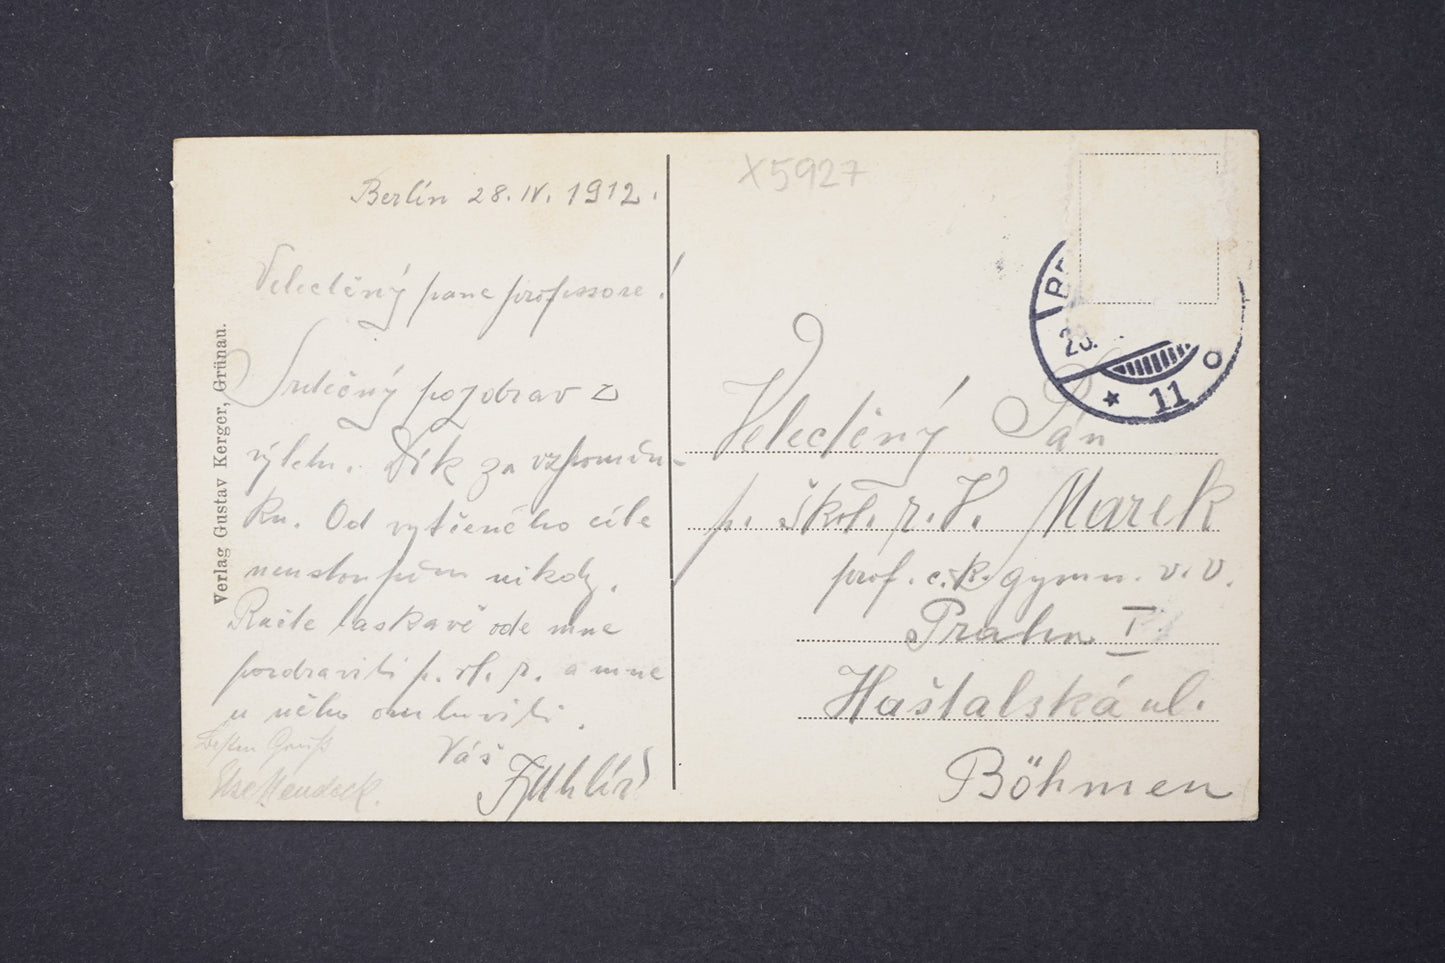 Berlín 28. IV. 1912.
Velectěný pane professore!
Srdečný pozdrav z
výletu. Dík za vzpomín-
ku. Od vytčeného cíle
neustoupím nikdy.
Račte laskavě ode mne
pozdraviti p. a mne
u něho omluviti.
Váš
Besten Gruß
Verlag Gustav Kerger, Grünau.
X5927
28.
* 11 o
Velectěný Pán
p. škol. r. V. Marek
prof. c. k. gymn. v. v.
Praha I
Haštalská ul.
Böhmen